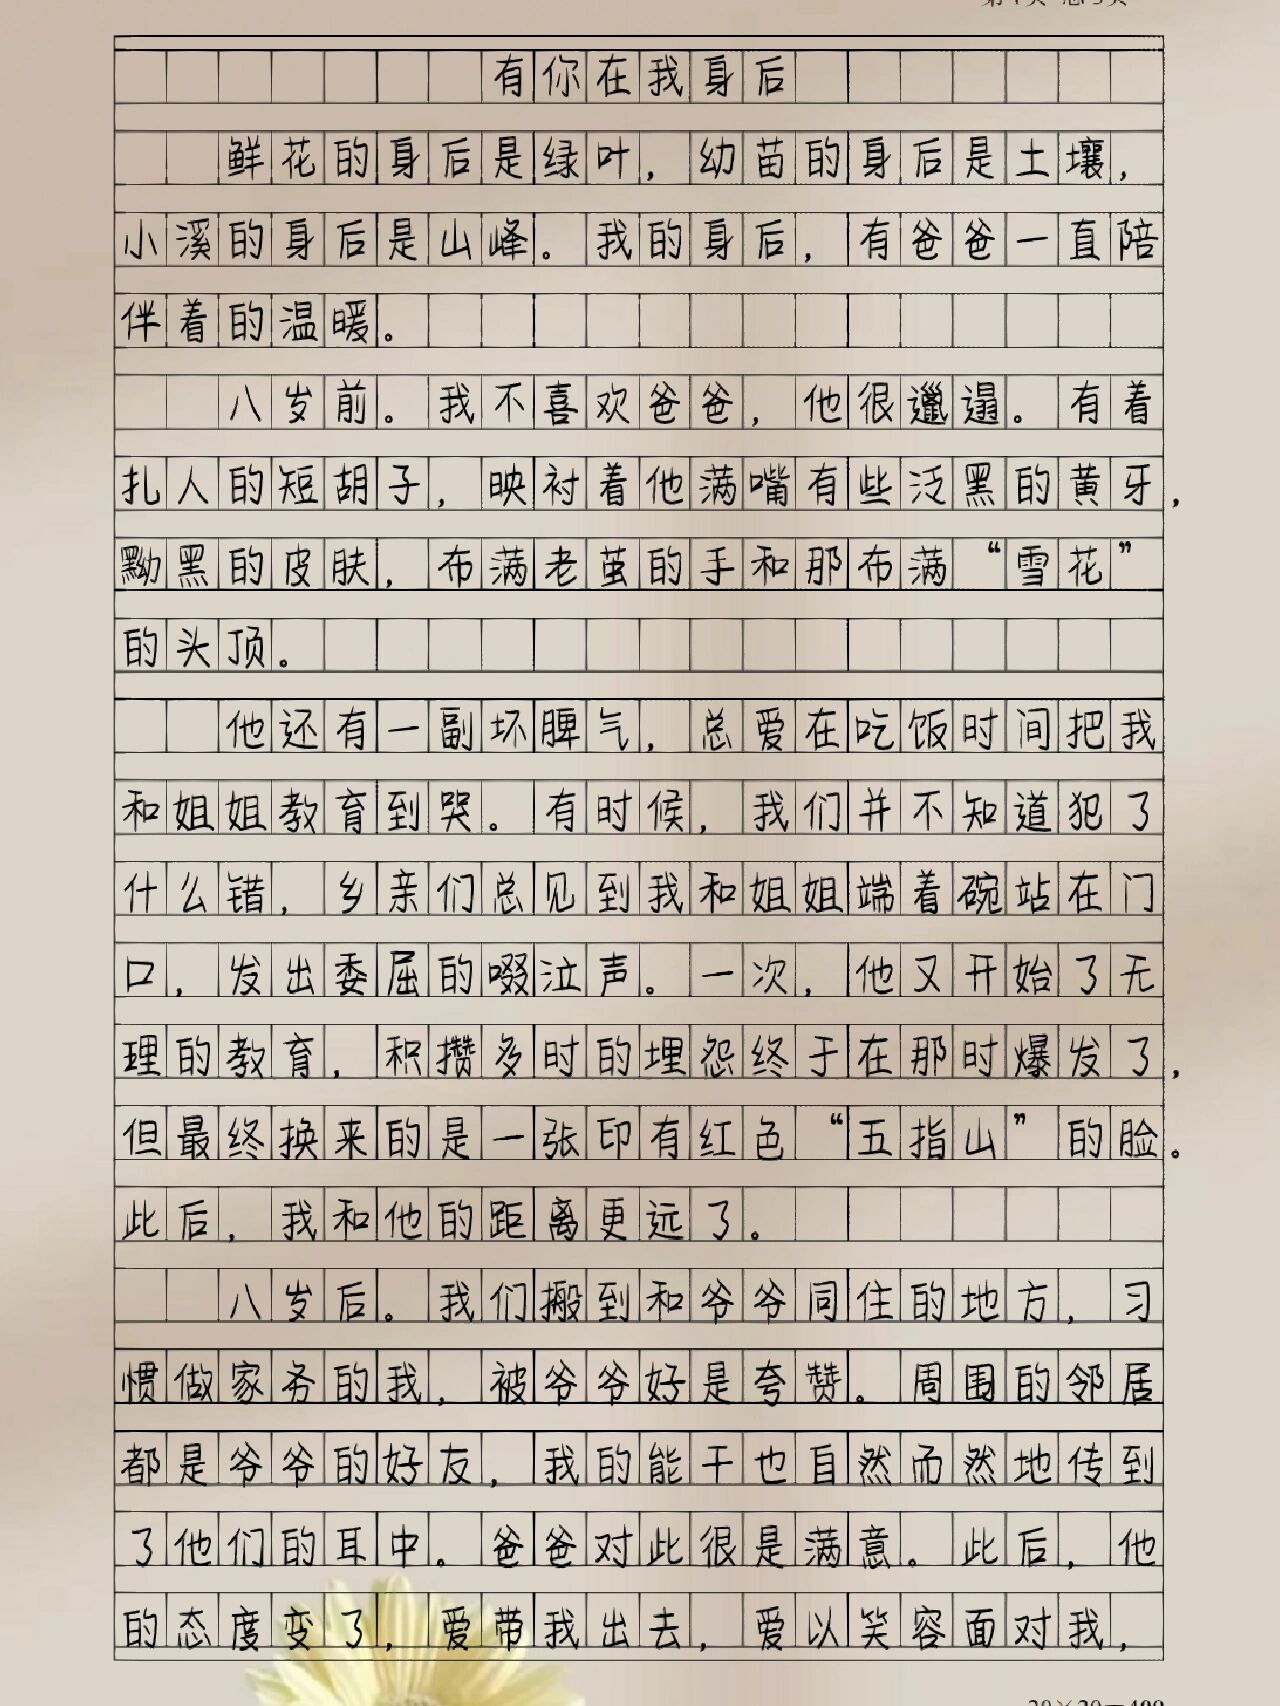 有你在我身后
鲜花的身后是绿叶，幼苗的身后是土壤，
小溪的身后是山峰。我的身后，有爸爸一直陪
伴着的温暖。
八岁前。我不喜欢爸爸，他很邋遢。有着
扎人的短胡子，映衬着他满嘴有些泛黑的黄牙，
黝黑的皮肤，布满老茧的手和那布满“雪花”
的头顶。
他还有一副坏脾气，总爱在吃饭时间把我
和姐姐教育到哭。有时候，我们并不知道犯了
什么错，乡亲们总见到我和姐姐端着碗站在门
口，发出委屈的啜泣声。一次，他又开始了无
理的教育，积攒多时的埋怨终于在那时爆发了，
但最终换来的是一张印有红色“五指山”的脸。
此后，我和他的距离更远了。
八岁后。我们搬到和爷爷同住的地方，习
惯做家务的我，被爷爷好是夸赞。周围的邻居
都是爷爷的好友，我的能干也自然而然地传到
了他们的耳中。爸爸对此很是满意。此后，他
的态度变了，爱带我出去，爱以笑容面对我，
20×20=400